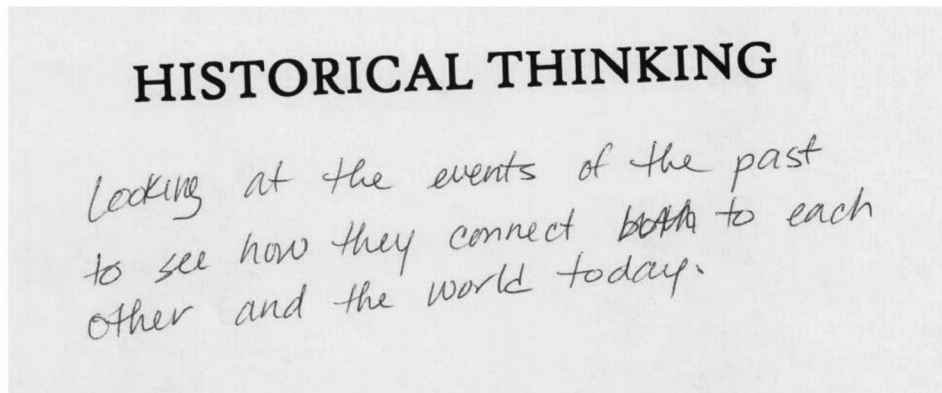 HISTORICAL THINKING
Looking at the events of the past
to see how they connect both to each
other and the world today.